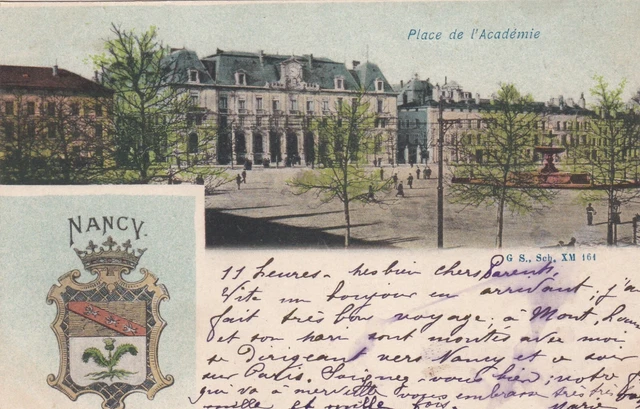 Place de l'Académie
NANCY.
G S., Sch. XM 161
11 heures - très bien chers Parents
Vite un bonjour en arrivant, j'ai
fait très bon voyage, à Mont,
et son mari sont montés avec moi
se dirigeant vers Nancy et ce soir
sur Paris. Soignez-vous bien, notre
qui va à merveille vous embrasse très très
mille et mille fois. Marie